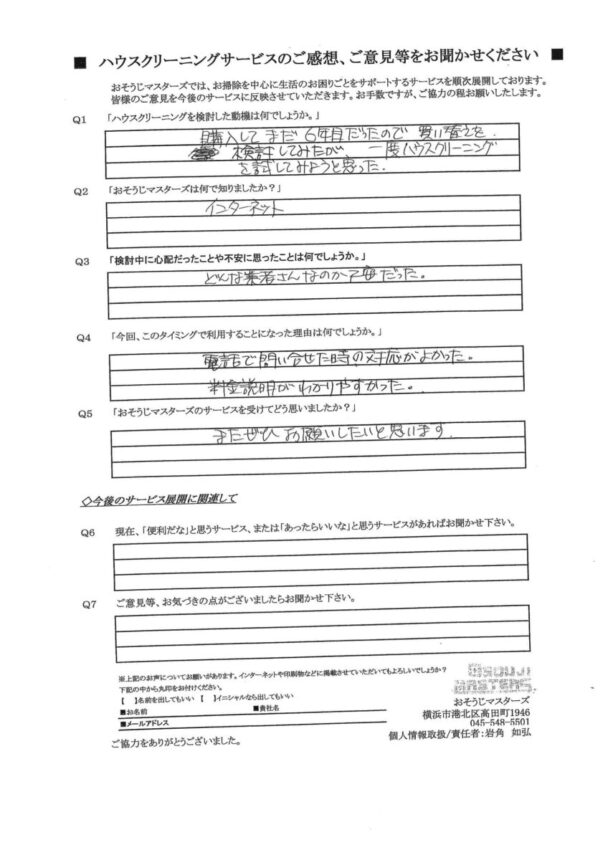 ■ ハウスクリーニングサービスのご感想、ご意見等をお聞かせください ■
おそうじマスターズでは、お掃除を中心に生活のお困りごとをサポートするサービスを順次展開しております。
皆様のご意見を今後のサービスに反映させていただきます。お手数ですが、ご協力の程お願いします。
Q1 「ハウスクリーニングを検討した動機は何でしょうか。」
購入して まだ 6年目だったので 買い替えを
検討してみたが 一度ハウスクリーニング
を試してみようと思った.
Q2 「おそうじマスターズは何で知りましたか?」
インターネット
Q3 「検討中に心配だったことや不安に思ったことは何でしょうか。」
どんな業者さんなのか不安だった。
Q4 「今回、このタイミングで利用することになった理由は何でしょうか。」
電話で問い合せた時の対応がよかった。
料金説明がわかりやすかった。
Q5 「おそうじマスターズのサービスを受けてどう思いましたか?」
またぜひ お願いしたいと思います.
◇今後のサービス展開に関連して
Q6 現在、「便利だな」と思うサービス、または「あったらいいな」と思うサービスがあればお聞かせ下さい。
Q7 ご意見等、お気づきの点がございましたらお聞かせ下さい。
※上記のお声についてお願いがあります。インターネットや印刷物などに掲載させていただいてもよろしいでしょうか?
下記の中から丸印をお付けください。
【 】名前を出してもいい 【 】イニシャルなら出してもいい
■お名前 ■貴社名
■メールアドレス
ご協力をありがとうございました。
OSOUJI
MASTERS
おそうじマスターズ
横浜市港北区高田町1946
045-548-5501
個人情報取扱/責任者:岩角 如弘